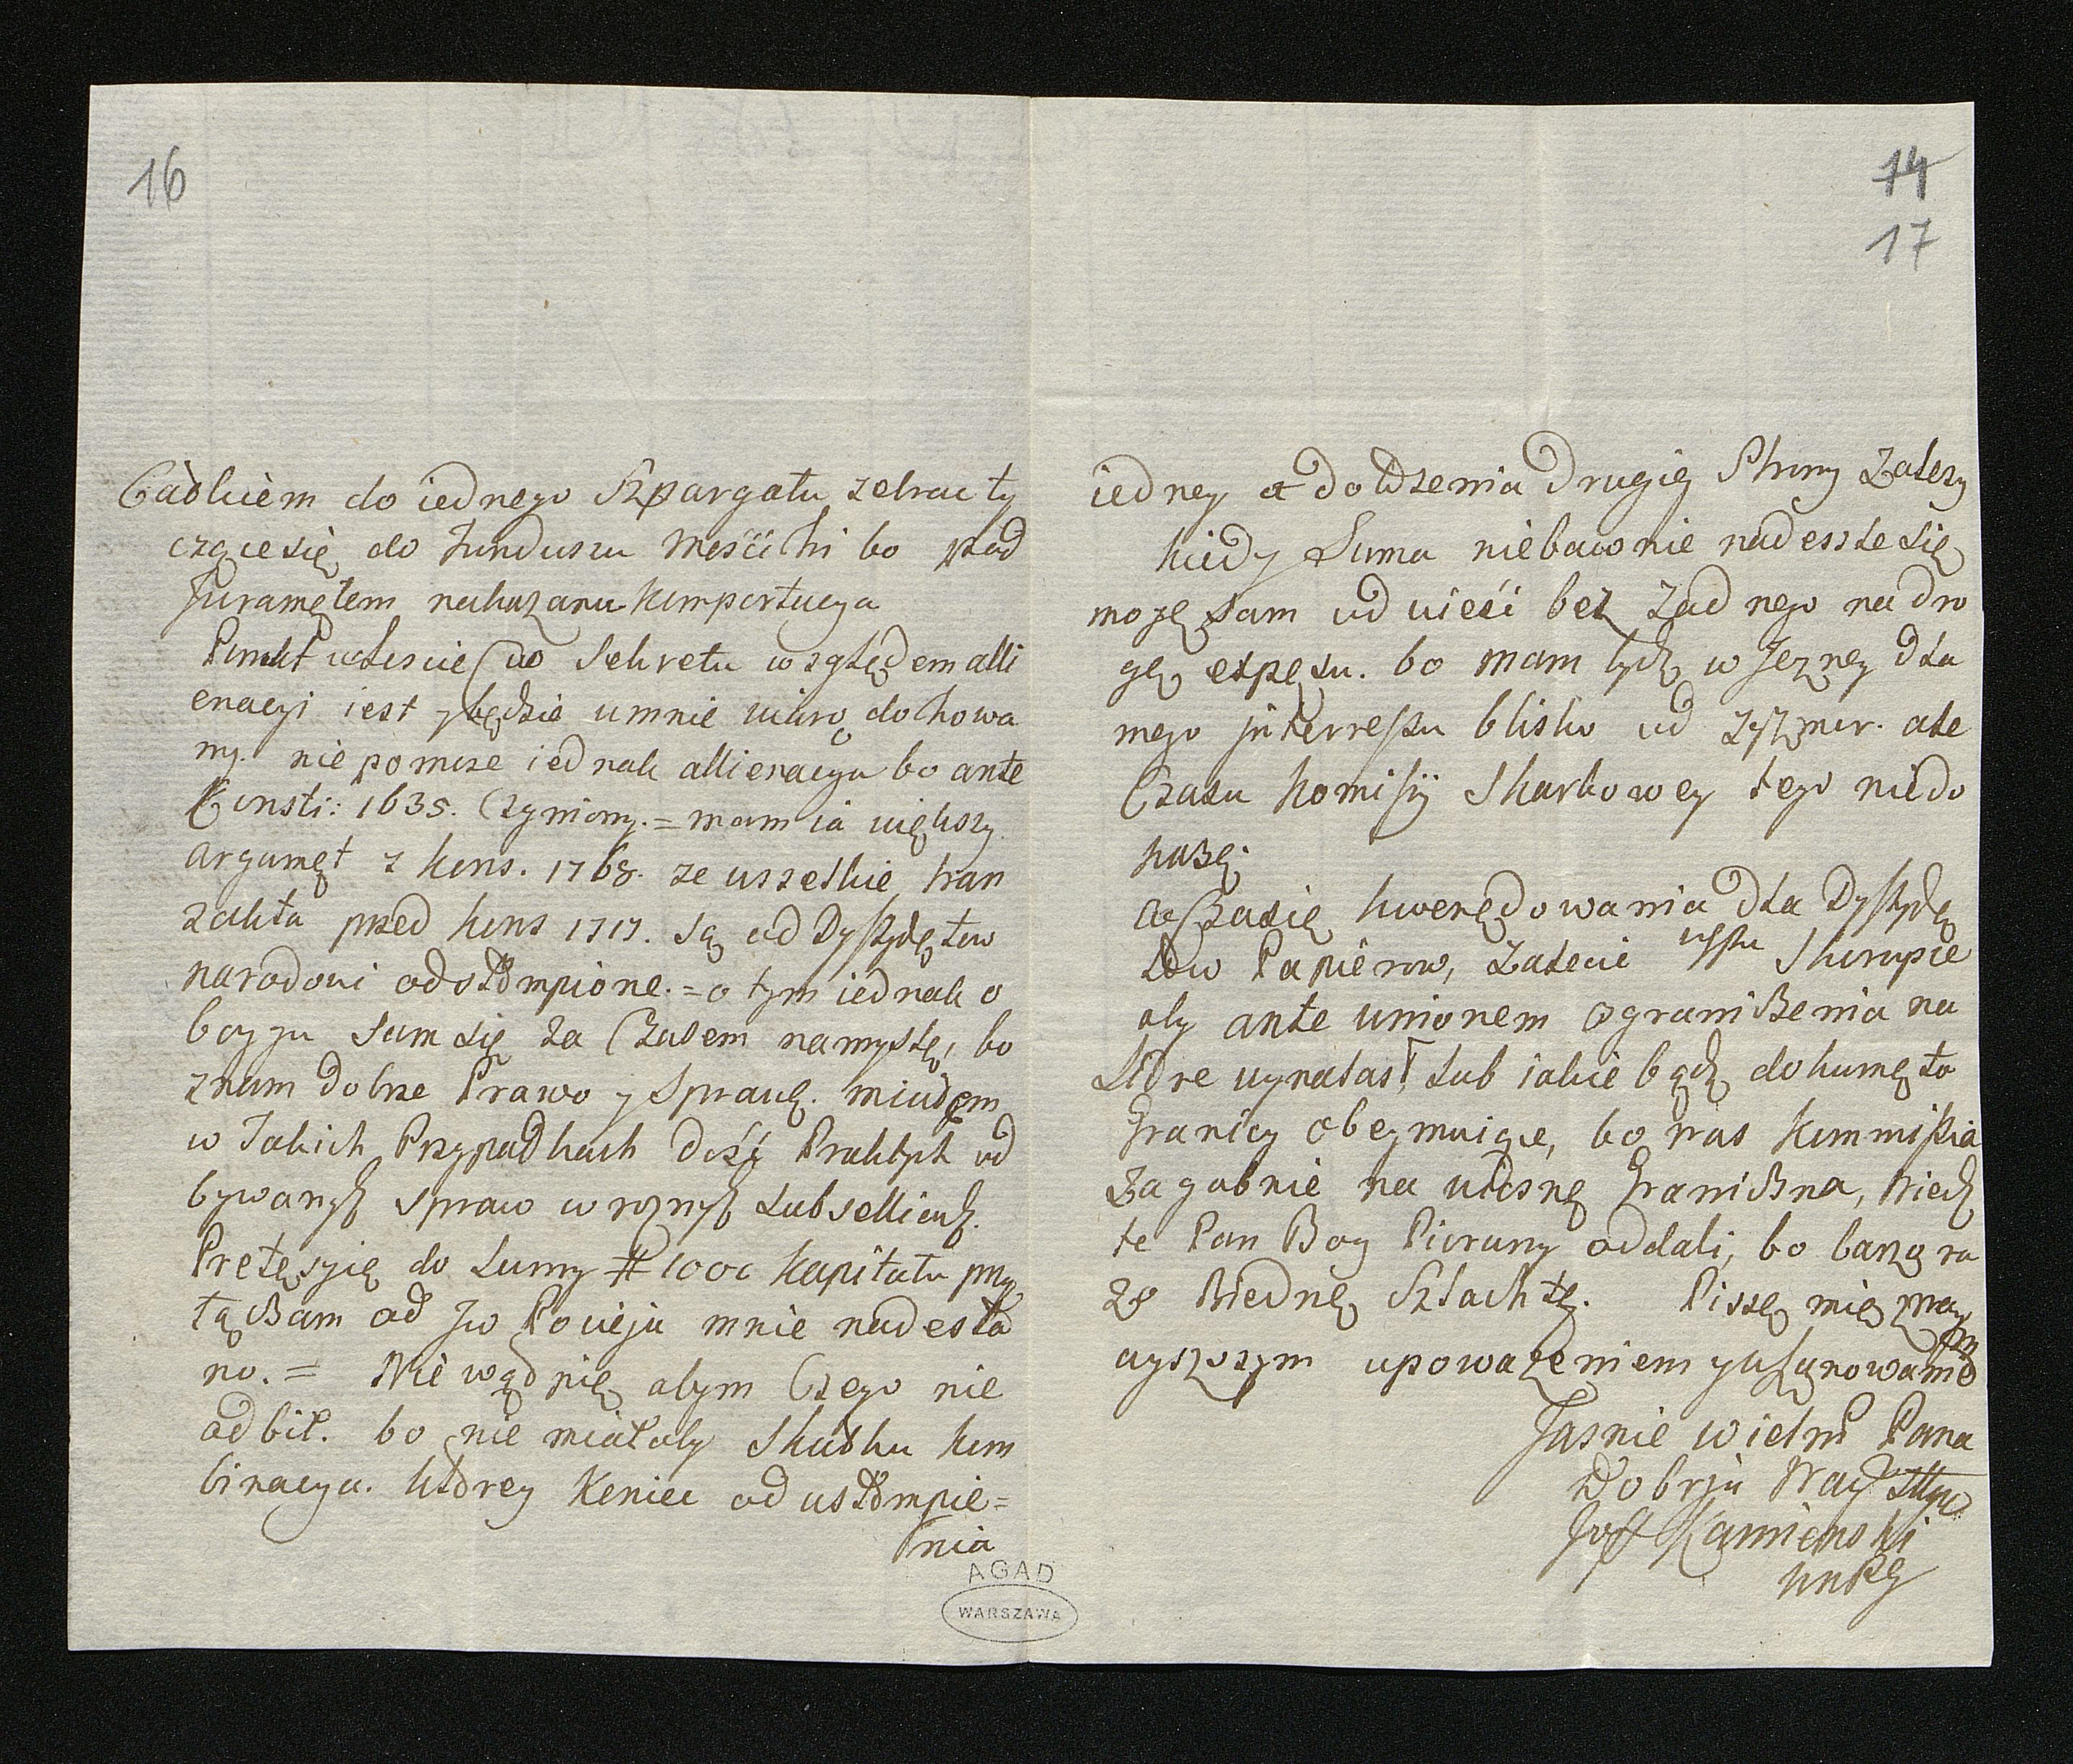 16
Całkiem do iednego Szpargału zebrac ty
czące się do Funduszu Mesćichi bo pod
Juramętem nakazana komportacya
Punkt wtescie do Sekretu względem alli
enacyi iest y będzie u mnie wiaro dochowa
ny. nie pomoze iednak allienacya bo ante
Consti: 1635. Czyniony. = mam ia większy
argumęt z kons. 1768. ze wszelkie tran
zakta przed kons 1717. są od Dyssydętow
narodowi odstompione. = o tym iednak o
boyga sam się za Czasem namyslę, bo
znam dobrze Prawo y Sprawę. miawszy
w Takich Przypadkach dość Praktyk od
bywanych spraw w roznych Subselliach.
Pretęsyię do Sumy # 1000 Kapitału przy
tączam od Jw Pocieja mnie nadesła
no. = Nie wądpię abym Czego nie
odbił. bo nie miałaby Skutku kom
binacya. ktorey Koniec od ustompie=
nia
AGAD
WARSZAWA
14
17
iedney a dołozenia Drugiey Strony Zalezy
kiedy Suma niebawnie nadeszle się
mogę sam od wieść bez zadnego na dro
gę expęsu. bo mam tych w Jezney dla
mego jnterressu blisko od Zyzmor. ale
Czasu Komissyi Skarbowey tego niedo
każę.
w Czasie kwerędowania dla Dyssydę
tow Papierow, Zalecic Skrupie
aby ante unionem ograniczenia na
Lidre wynalasł lub iakie bądź dokumęta
Granicy obeymuiące, bo nas Kommissia
zagabnie na wiesnę Graniczna, niech
te Pan Bog Pioruny oddali, bo barzo ra
zo Biednę Szlachtę. Piszę mię z nay
wyszszym upowazeniem y uszanowaniem
Jasnie Wielm Pana
Dobrju Nay
Jozf Kamienski